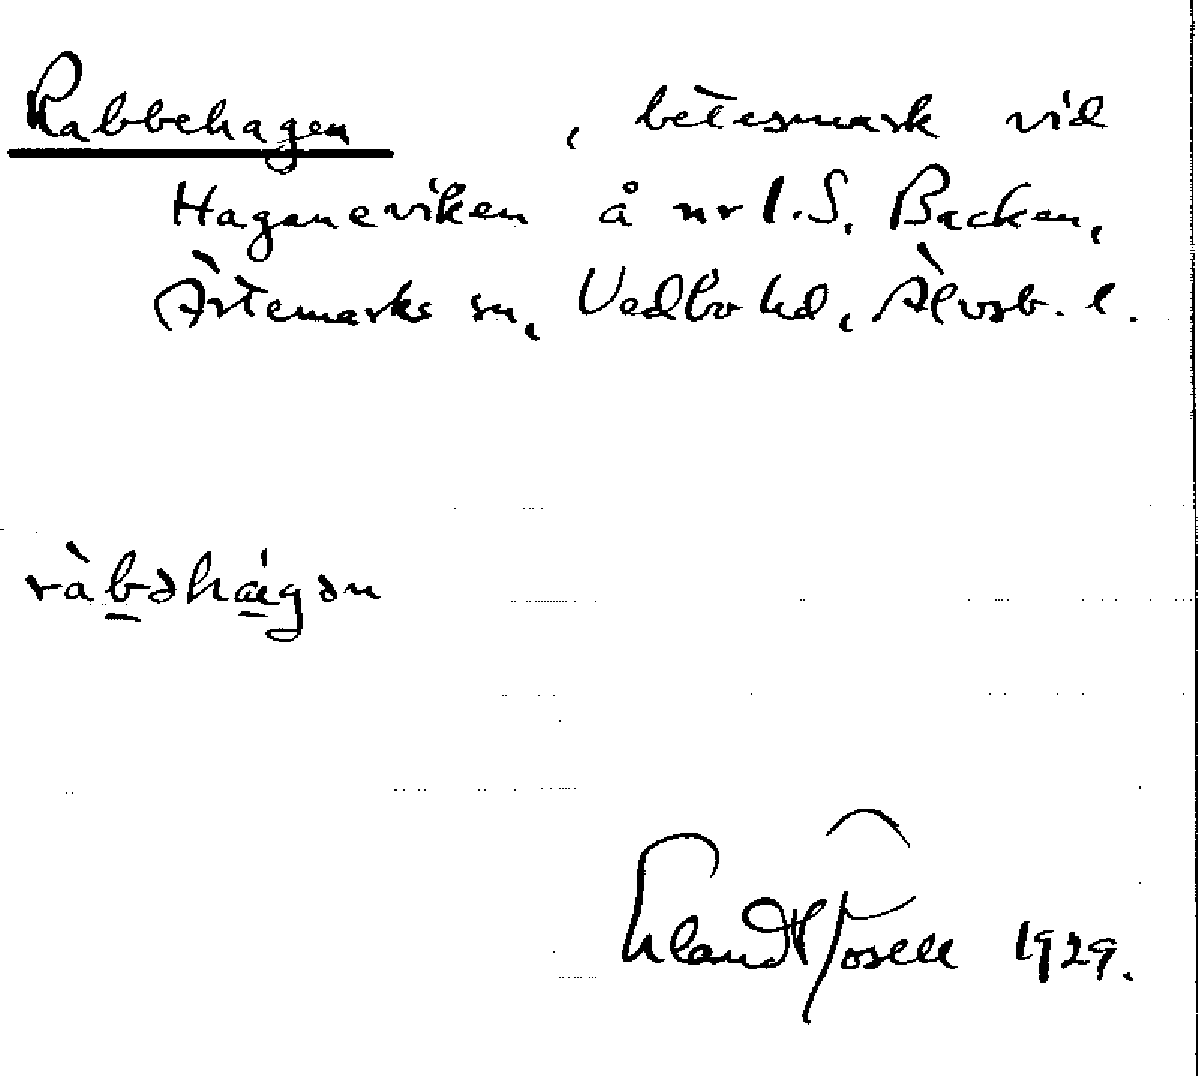 Rabbehagen , betesmark vid
Haganeviken å nr 1. S. Backen,
Ärtemarks sn, Vedbo hd, Älvsb. l.
ràbəhágən
Erland Rosell 1929.